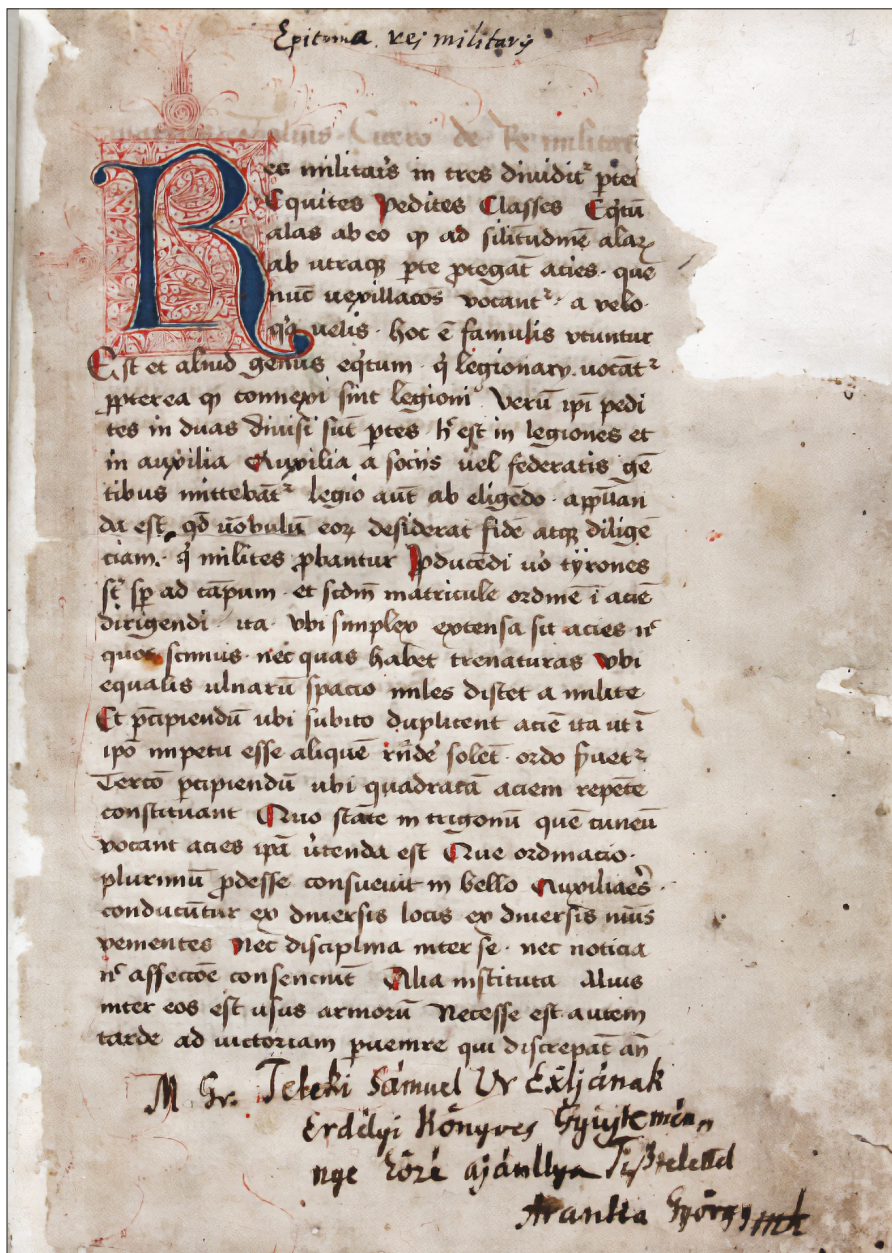 Epitoma rej militarys
1
Tulius Cicero de Re militari
Res militaris in tres dividit² ptes
Equites Pedites Classes Eqtũ
alas ab eo ꝙ ad silitudinẽ alaꝝ
ab utraqꝫ pte ptegãt acies · que
nũc uexillacões vocant² · a velo
velis · hoc ẽ famulis vtuntur
Est et aliud genus eqtum · q legionarij vocãt²
ꝓpterea ꝙ connexi sint legioni Verũ ipi pedi
tes in duas divisi sũt ptes h est in legiones et
in auxilia Auxilia a sociis uel federatis gẽ
tibus mittebãt² legio aut ab eligẽdo · appllan
da est qd eoꝝ desiderat fidẽ atqꝫ diligẽ
ciam · q milites pbantur Pducẽdi uo tyrones
st sp ad cãpum · et scdm matricule ordinẽ ĩ aciẽ
dirigendi · ita · vbi simplex extensa sit acies
quos sinus · nec quas habet trenaturas vbi
equalis ulnarũ spacio miles distet a milite
Et pcipiendũ ubi subito duplicent aciẽ ita ut ĩ
ipo impetu esse aliquẽ solet · ordo
Tercõ pcipiendũ ubi quadratã aciem repẽte
constituant Quo in trigonũ quẽ cuneũ
vocant acies ipã est Que ordinacio ·
plurimũ pdesse consueuit in bello Auxiliaẽs ·
conducũtur ex diuersis locis ex diuersis
venientes Nec disciplina inter se · nec noticia
affeccõe consenciũt Alia instituta Alius
inter eos est usus armorũ Necesse est autem
tarde ad uictoriam puenire qui discrepãt añ
M Gr. Teleki Sámuel Ur Exljának
Erdélyi Könyves Gyüjtemén„
nye köré ajánllya
Aranka György mk